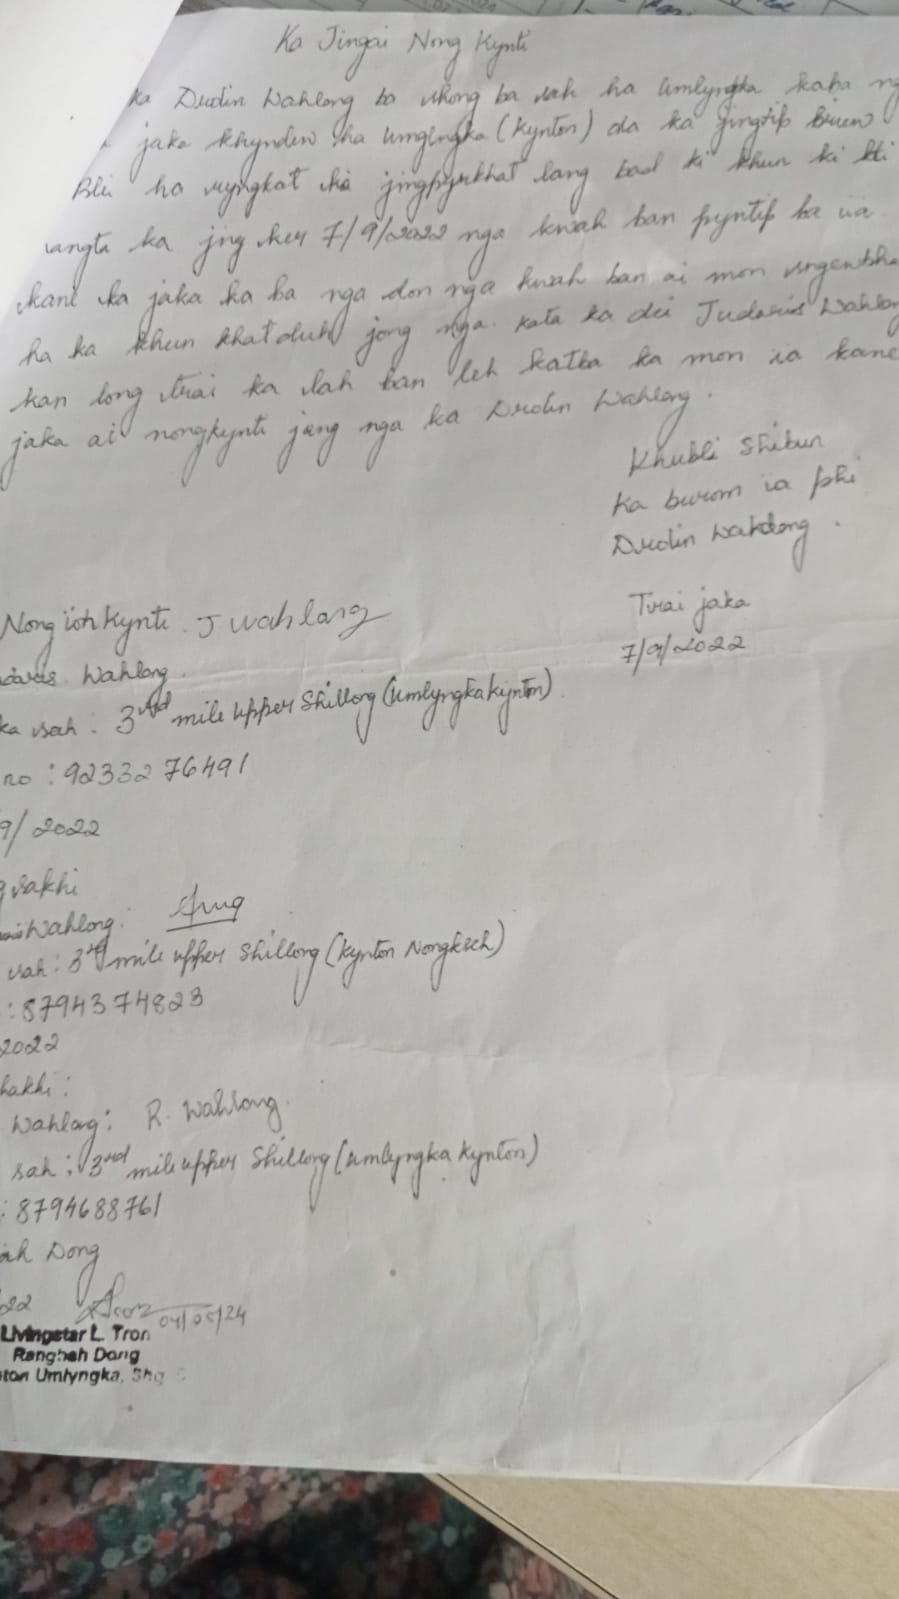 Ka Jingai Nong Kynti
ka Drolin Wahlang ba shong ba sah ha Umlyngka kaba
jaka khyndew ha Umlyngka (Kynton) da ka jingtip briew
Blei ha ryngkat ka jingpyrkhat lang bad ki khun ki
nangta ka jng her 7/9/2022 nga kwah ban pyntip ba ia
kane ka jaka ka ba nga don nga kwah ban ai mon
ha ka khun khatduh jong nga. Kata ka dei Wahlang
kan long trai ka lah ban leh katba ka mon ia kane
jaka ai nongkynti jong nga ka Drolin Wahlang.
Khubli Shibun
Ka burom ia phi
Drolin Wahlang.
Trai jaka
7/9/2022
Nong ioh Kynti. J Wahlang
Wahlang.
ka sah : 3rd mile upper Shillong (Umlyngka kynton).
no : 92332 76491
9/2022
sakhi
Wahlang:
sah : 3rd mile upper Shillong (Kynton Nongkseh)
: 8794374823
2022
sakhi :
Wahlang: R. Wahlang.
sah : 3rd mile upper Shillong (Umlyngka Kynton)
: 8794688761
ah Dong
22
04/05/24
Livingstar L. Tron
Rangbah Dong
ton Umlyngka, Shg